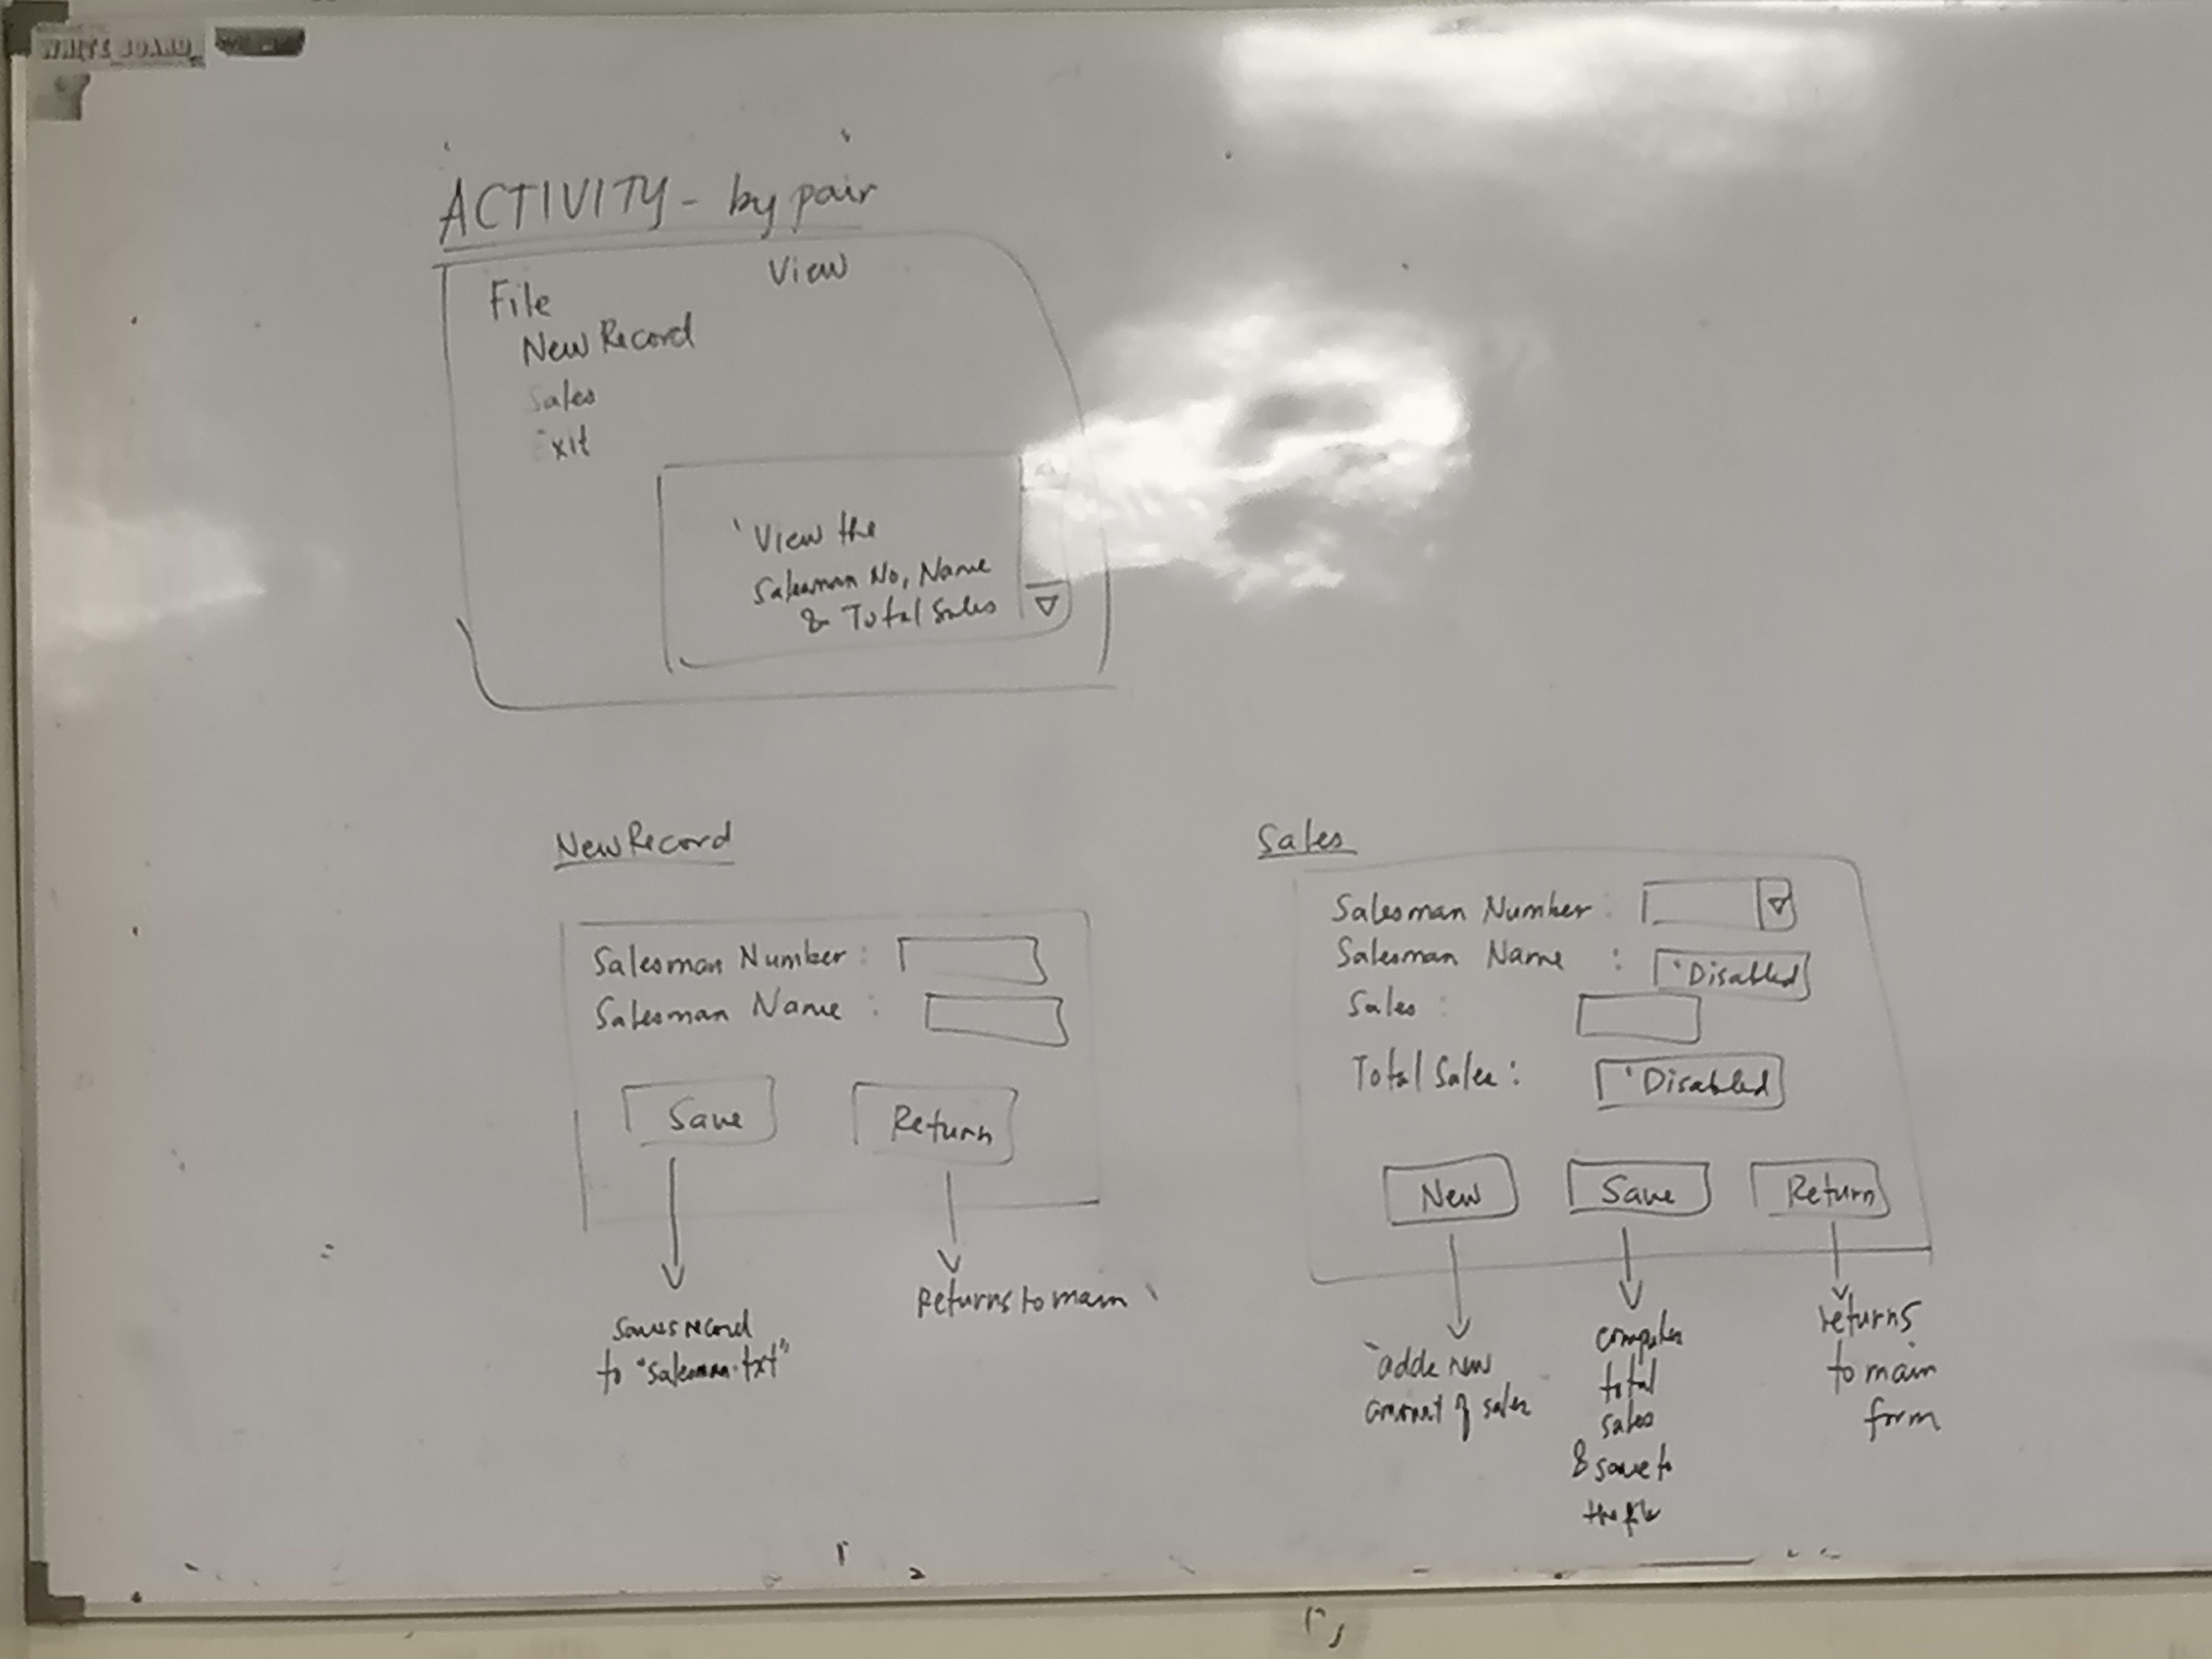 WHITE BOARD
ACTIVITY - by pair
File View
New Record
Sales
Exit
'View the
Salesman No, Name
& Total Sales
New Record
Salesman Number :
Salesman Name :
Save Return
saves record
to "salesman.txt"
Returns to main
Sales
Salesman Number :
Salesman Name : 'Disabled
Sales :
Total Sales : 'Disabled
New Save Return
adds new
amount of sales
computes
total
sales
& save to
the file
returns
to main
form